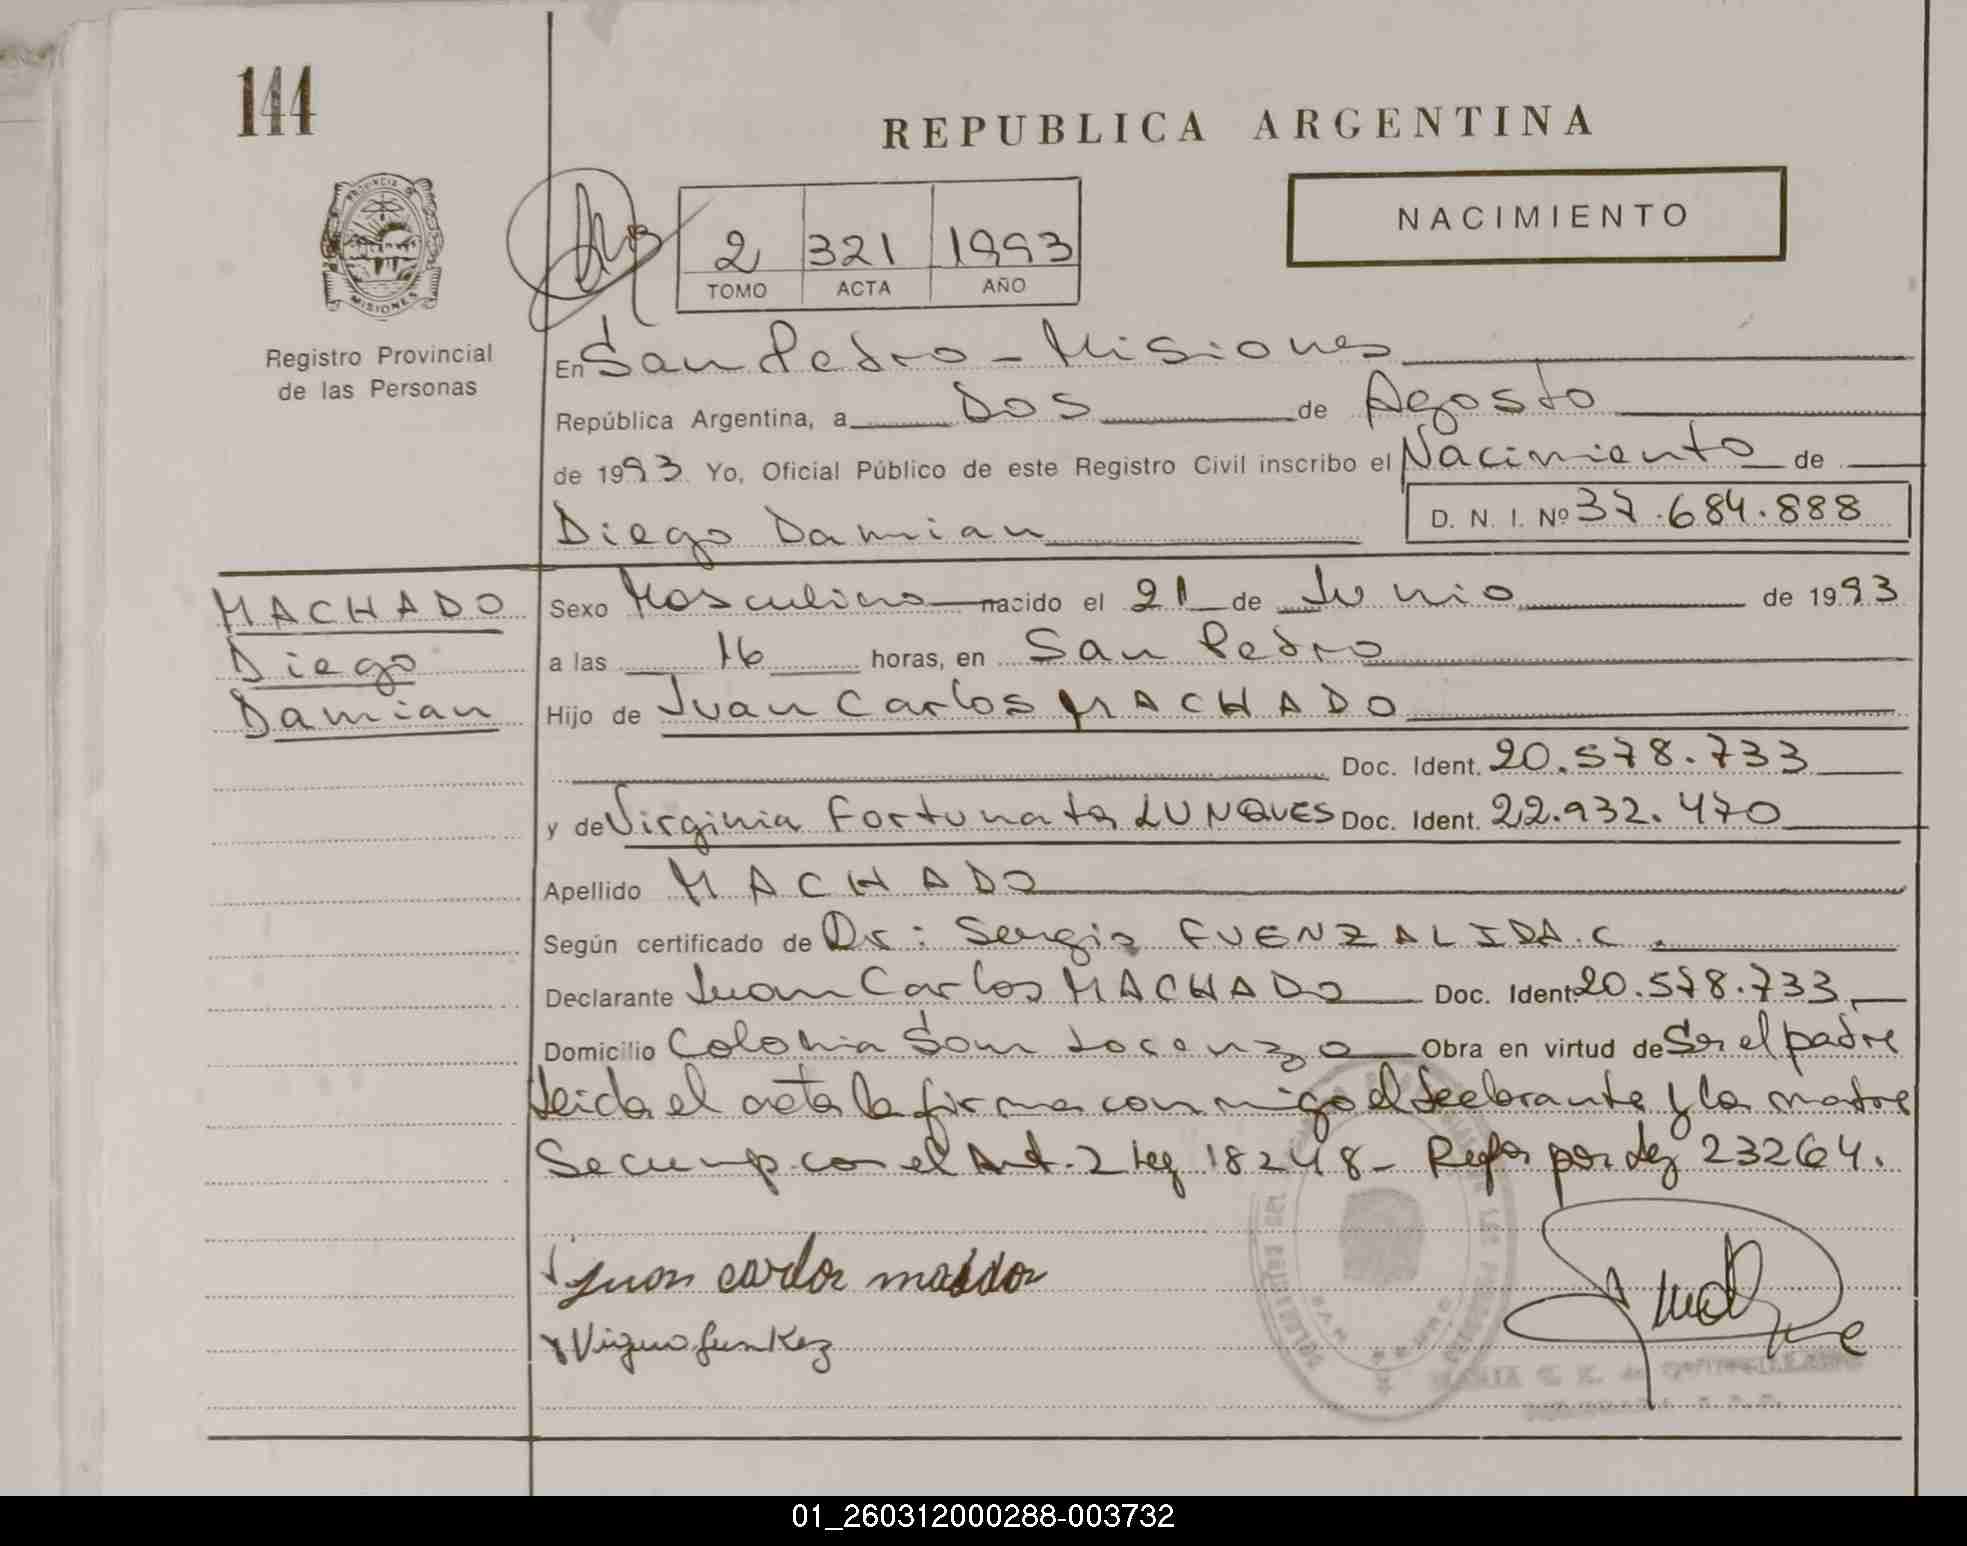 144
REPUBLICA ARGENTINA
PROVINCIA DE
MISIONES
2 321 1993
TOMO ACTA AÑO
NACIMIENTO
Registro Provincial
de las Personas
En San Pedro - Misiones
República Argentina, a Dos de Agosto
de 1993 Yo, Oficial Público de este Registro Civil inscribo el Nacimiento de
Diego Damian D. N. I. Nº 37.684.888
MACHADO
Diego
Damian
Sexo Masculino nacido el 21 de Junio de 1993
a las 16 horas, en San Pedro
Hijo de Juan Carlos MACHADO
Doc. Ident. 20.578.733
y de Virginia Fortunata LUNQUES Doc. Ident. 22.932.470
Apellido MACHADO
Según certificado de Dr: Sergio FUENZALIDA.C.
Declarante Juan Carlos MACHADO Doc. Ident. 20.578.733
Domicilio Colonia San Lorenzo Obra en virtud de Ser el padre
Leida el acta la firma conmigo el declarante y la madre
Se cump. con el Art. 2 Ley 18248- Refor por Ley 23264.
Juan carlos
SAN PEDRO
01_260312000288-003732